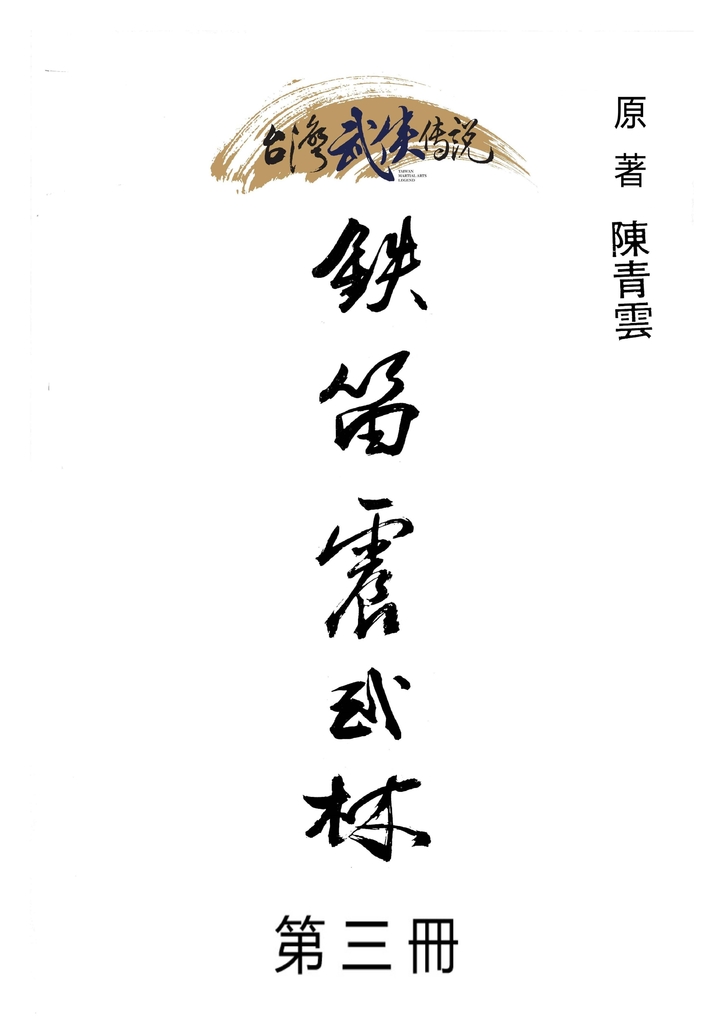 台灣武俠傳說
TAIWAN
MARTIAL ARTS
LEGEND
原著 陳青雲
鉄笛震武林
第三冊